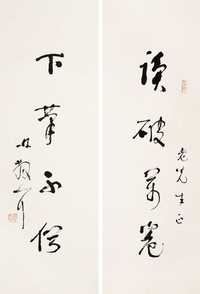 讀破萬卷
老先生正
下筆不
林散耳